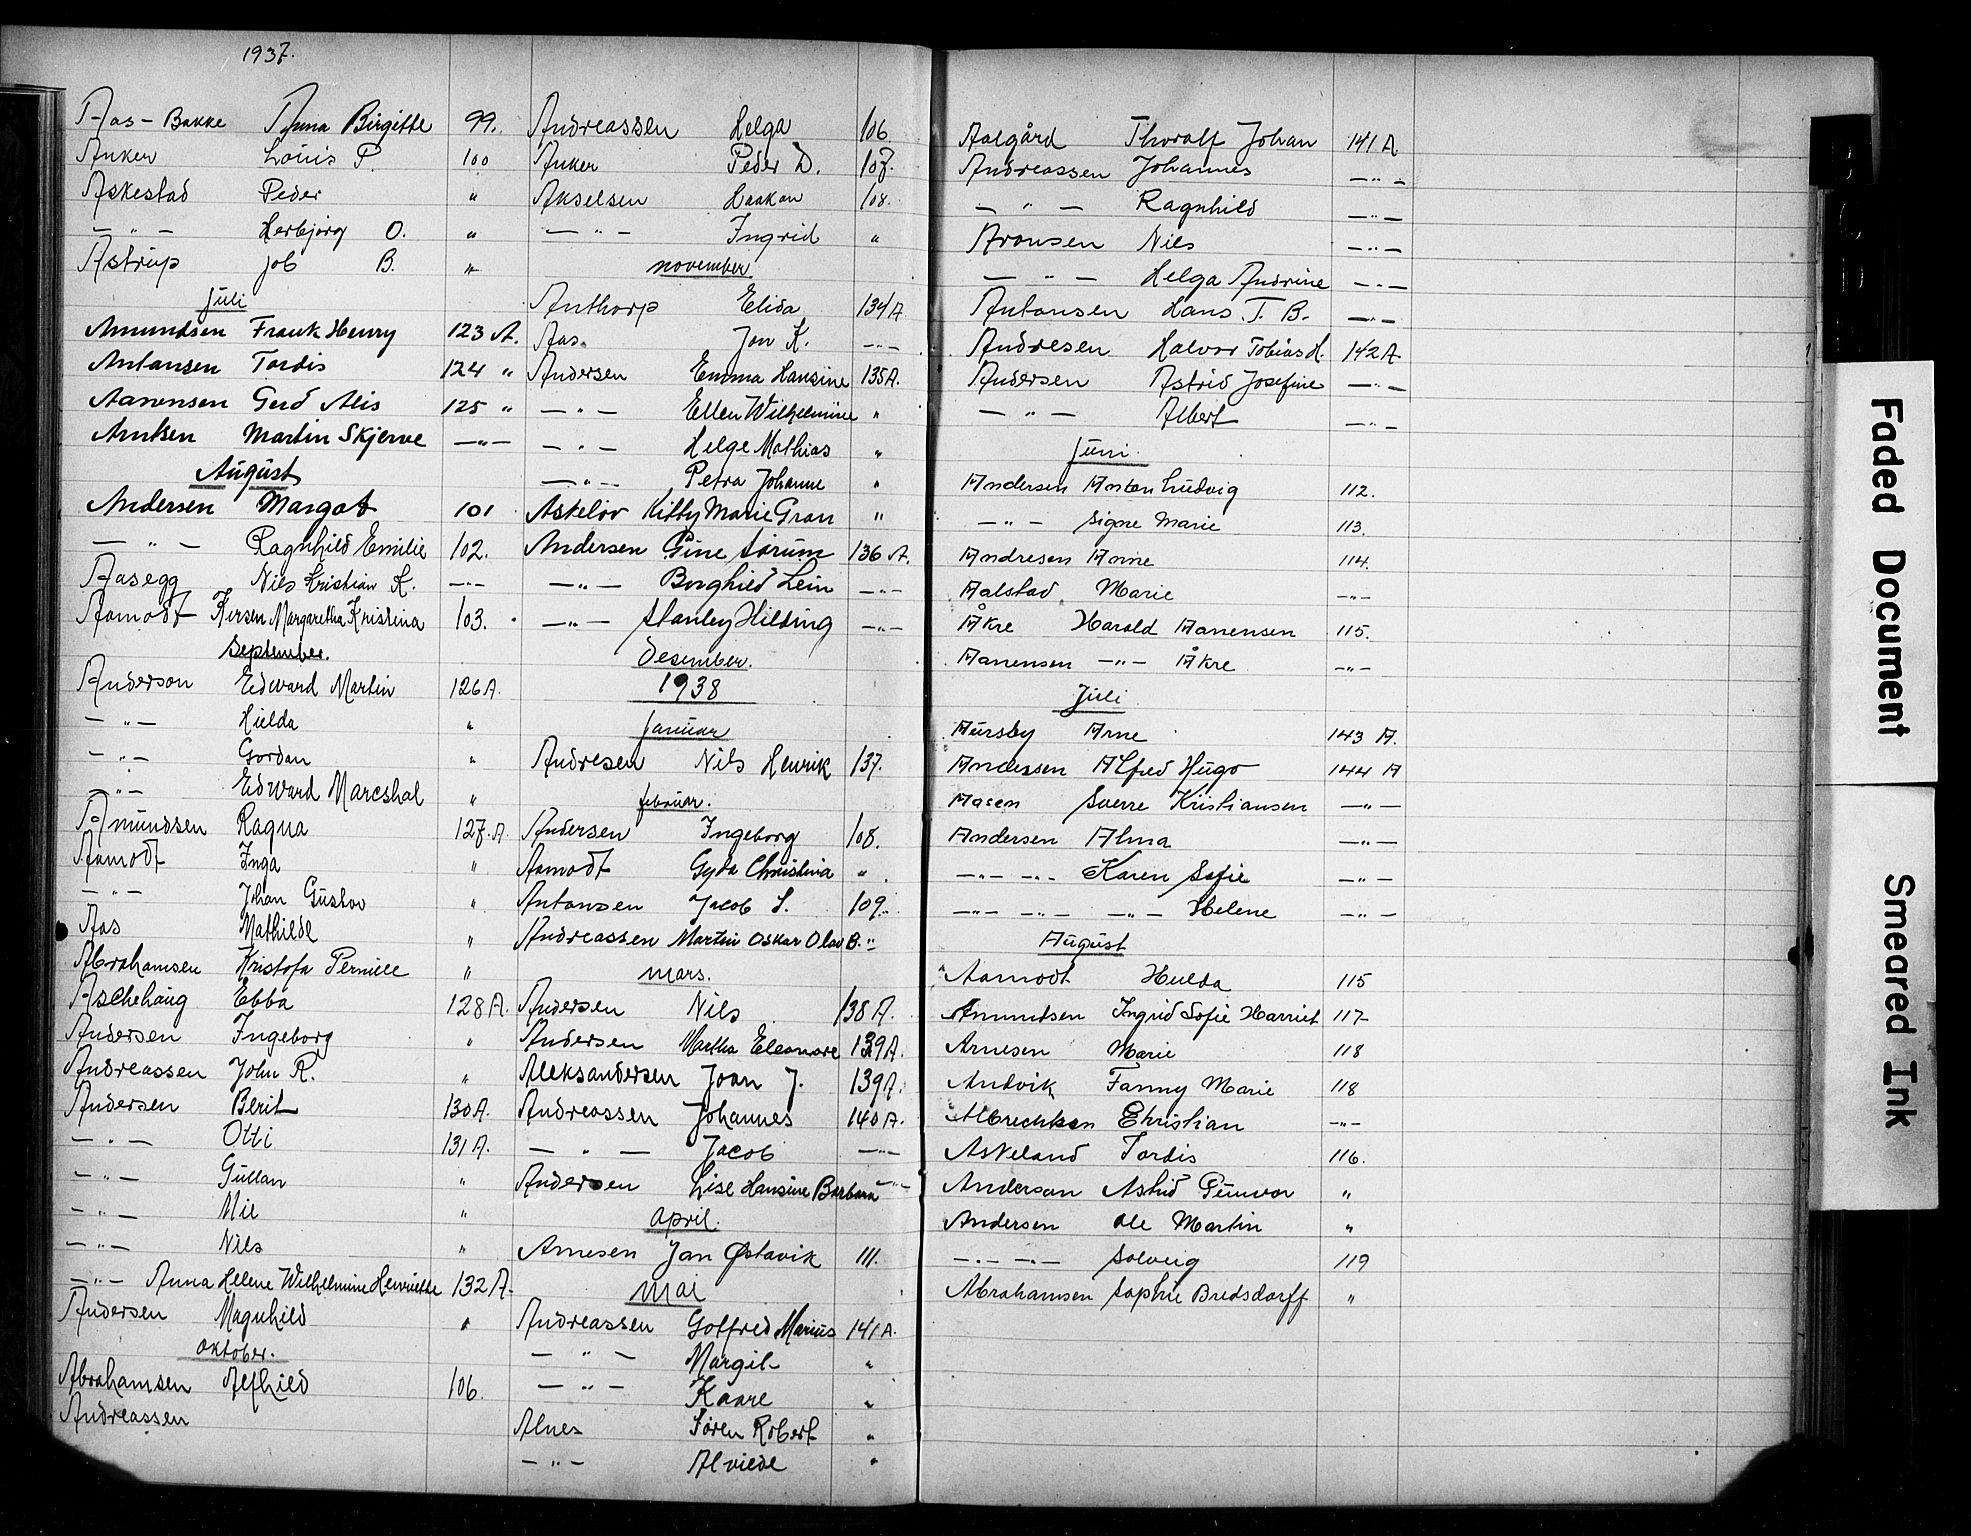 1937.
Aas - Bakke Anna Birgitte 99.
Anker Louis P. 100
Askestad Peder "
— " — Herbjørg O. "
Astrup Job B. "
Juli
Amundsen Frank Henry 123 A.
Antonsen Tordis 124 "
Aanonsen Gerd Alis 125 "
Arntsen Martin Skjerve — " —
August
Andersen Margot 101
— " — Ragnhild Emilie 102.
Aasegg Nils Kristian K. — " —
Aamodt Kirsen Margaretha Kristina 103.
September.
Anderson Edward Martin 126 A.
— " — Hilda "
— " — Gordon "
— " — Edward Mareshal "
Amundsen Ragna 127. A.
Aamodt Inga "
— " — Johan Gustav "
Aas Mathilde "
Abrahamsen Kristofa Pernille "
Aschehaug Ebba 128 A.
Andersen Ingeborg "
Andreassen John R. "
Andersen Berit 130 A.
— " — Otti 131 A.
— " — Gullan "
— " — Mie "
— " — Nils "
— " — Anna Helene Wilhelmine Henriette 132 A.
Andersen Magnhild "
Oktober.
Abrahamsen Alfhild 106.
Andreassen
Andreassen Helga 106
Anker Peder D. 107.
Akselsen Haakon 108.
— " — Ingrid "
November
Anthorp Elida 134 A
Aas. Jon K. — " —
Andersen Emma Hansine 135 A.
— " — Ellen Wilhelmine "
— " — Helge Mathias "
— " — Petra Johanne "
Askeløv Kitty Marie Gran "
Andersen Gine Sørum 136 A.
— " — Borghild Lein — " —
— " — Stanley Hilding — " —
Desember.
1938
Januar
Andresen Nils Henrik 137.
Februar.
Andersen Ingeborg 108.
Aamodt Gyda Christina "
Antonsen Jacob S. 109.
Andreassen Martin Oskar Olav B. "
Mars.
Andersen Nils 138 A.
Andersen Martha Eleonore 139 A.
Aleksandersen Joan J. 139 A.
Andreassen Johannes 140 A.
— " — Jacob — " —
Andersen Lise Hansine Barbara — " —
April.
Arnesen Jan Østavik 111.
Mai
Andreassen Gotfred Marius 141 A.
— " — Margit "
— " — Kaare "
Alnes Søren Robert "
— " — Alvilde "
Aalgård Thoralf Johan 141 A
Andreassen Johannes — " —
— " — Ragnhild — " —
Aronsen Nils — " —
— " — Helga Andrine — " —
Antonsen Hans T. B. — " —
Andresen Halvor Tobias H. 142 A.
Andersen Astrid Josefine — " —
— " — Albert — " —
Juni.
Andersen Anton Ludvig 112.
— " — Signe Marie 113.
Andresen Anne 114.
Aalstad Marie — " —
Åkre Harald Aanensen 115.
Aanensen — " — Åkre — " —
Juli
Aursby Arne 143 A.
Anderssen Alfred Hugo 144 A
Aasen Sverre Kristiansen — " —
Andersen Alma — " —
— " — — " — Karen Sofie — " —
— " — — " — — " — Helene — " —
August
Aamodt Hulda 115
Amundsen Ingrid Sofie Harriet 117
Arnesen Marie 118
Andvik Fanny Marie 118
Albrechtsen Christian — " —
Askeland Tordis 116.
Anderson Astrid Gunvor "
Andersen Ole Martin "
— " — — " — Solveig 119
Abrahamsen Sophie Bredsdorff "
Faded Document
Smeared Ink